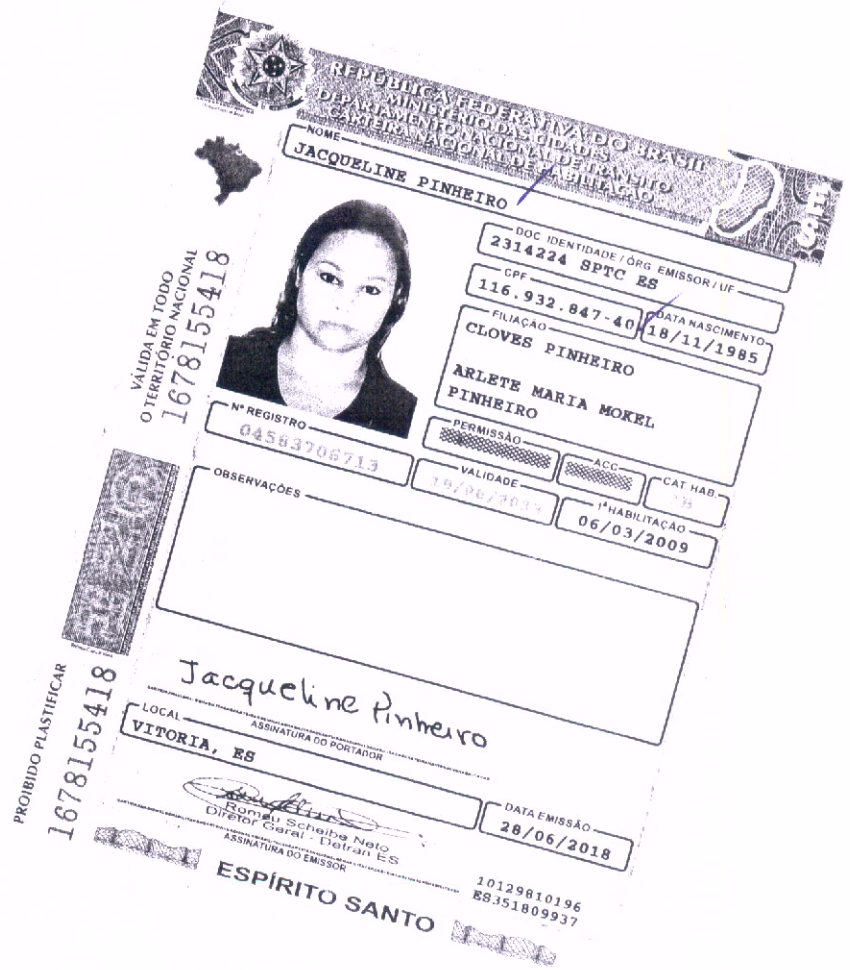 REPÚBLICA FEDERATIVA DO BRASIL
MINISTÉRIO DAS CIDADES
DEPARTAMENTO NACIONAL DE TRÂNSITO
CARTEIRA NACIONAL DE HABILITAÇÃO
NOME
JACQUELINE PINHEIRO
DOC. IDENTIDADE / ÓRG. EMISSOR / UF
2314224 SPTC ES
CPF
116.932.847-40
DATA NASCIMENTO
18/11/1985
FILIAÇÃO
CLOVES PINHEIRO
ARLETE MARIA MOKEL
PINHEIRO
PERMISSÃO
ACC
CAT. HAB.
Nº REGISTRO
04583706713
VALIDADE
1ª HABILITAÇÃO
06/03/2009
OBSERVAÇÕES
VÁLIDA EM TODO
O TERRITÓRIO NACIONAL
1678155418
Jacqueline Pinheiro
ASSINATURA DO PORTADOR
LOCAL
VITORIA, ES
DATA EMISSÃO
28/06/2018
Romeu Scheibe Neto
Diretor Geral - Detran ES
ASSINATURA DO EMISSOR
10129810196
ES351809937
PROIBIDO PLASTIFICAR
1678155418
ESPÍRITO SANTO